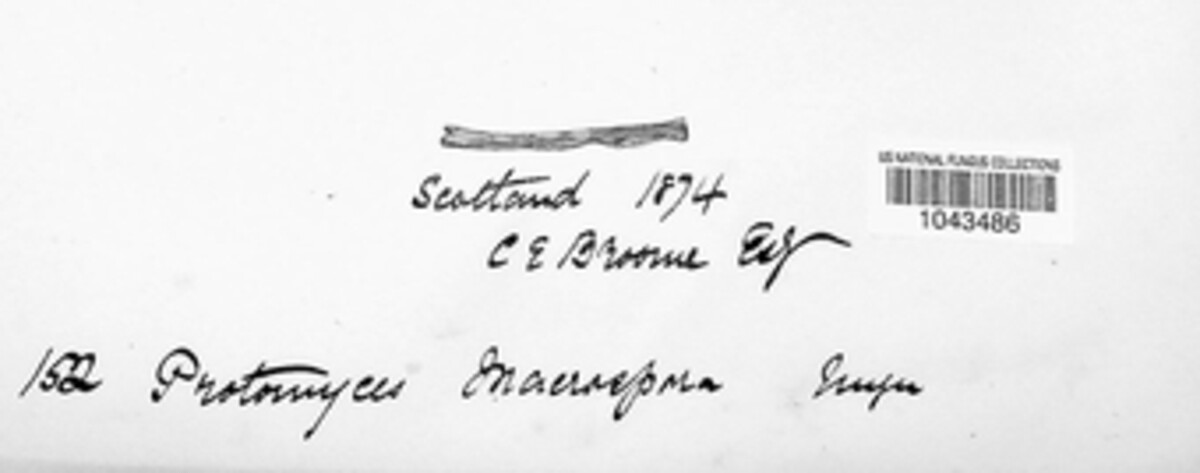 US NATIONAL FUNGUS COLLECTIONS
1043486
Scotland 1874
C E Broome Esq
152 Protomyces Macrospora